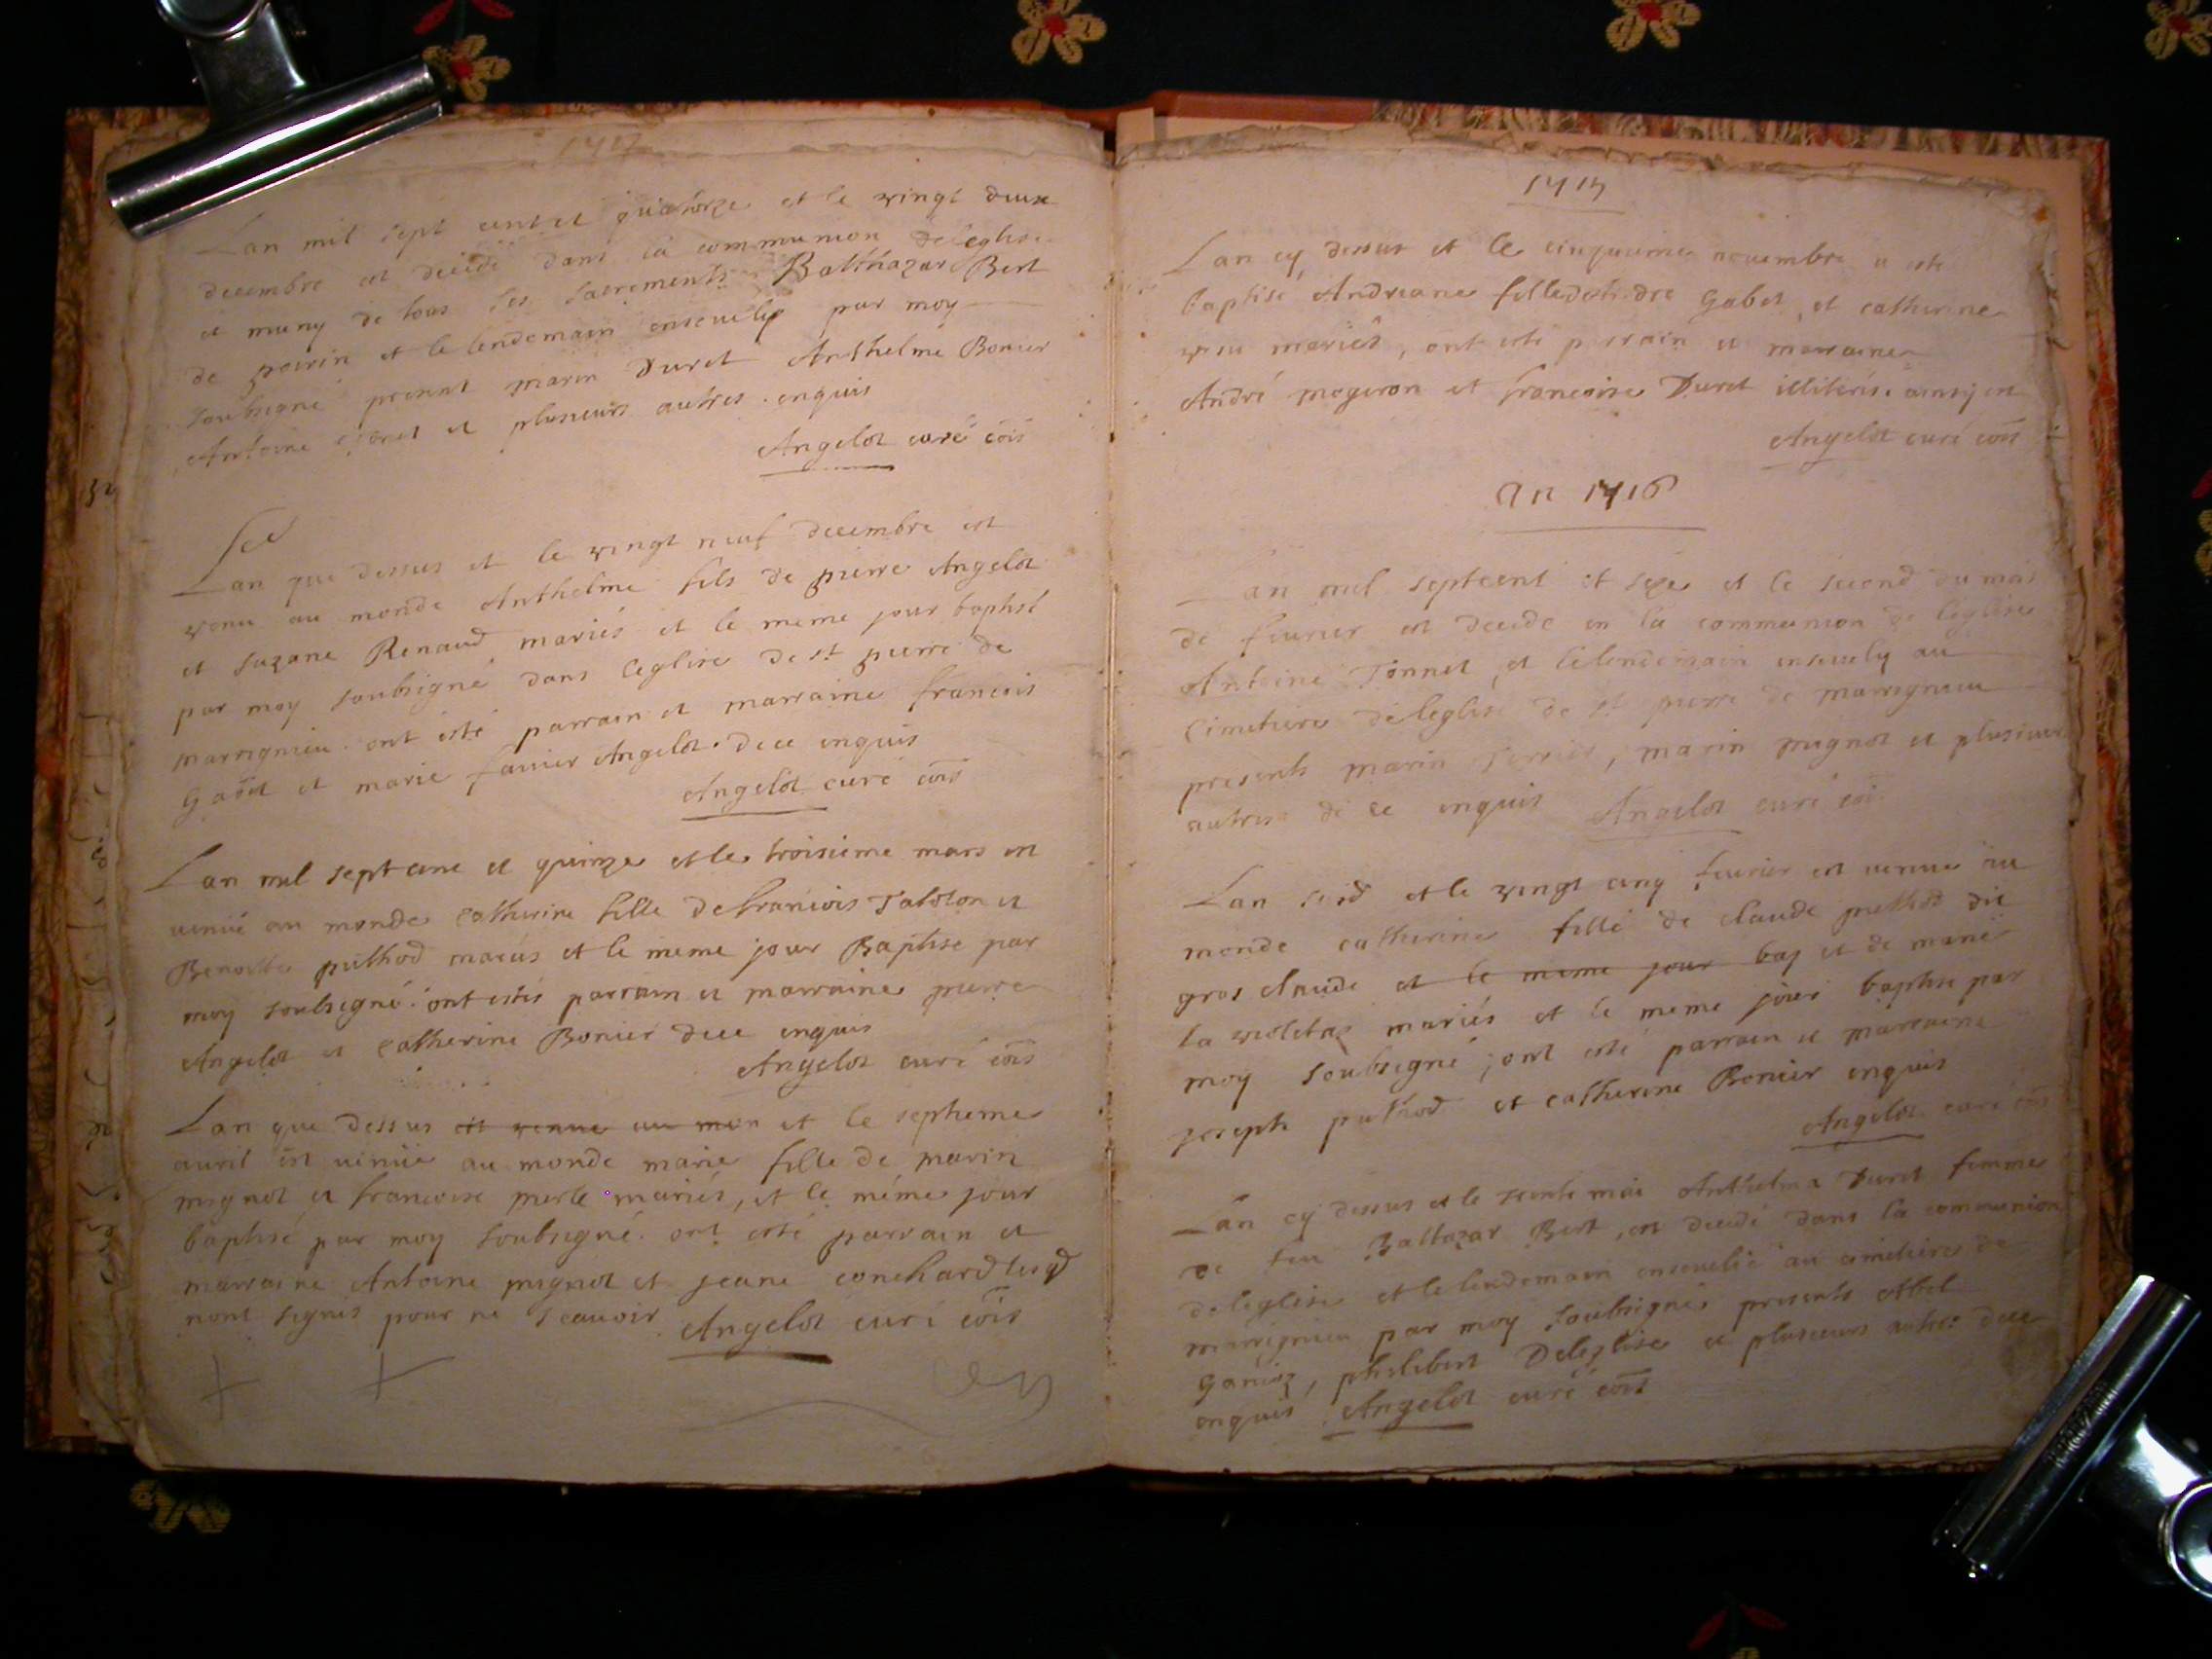 Lan mil sept cent et quatorze et le vingt deux
decembre est decedé dans la communion de leglise
et muny de tous ses sacrements Balthazar Bert
de peirin et le lendemain ensevely par moy
soubsigné present marin Duret Anthelme Bonier
Antoine et plusieurs autres. enquis
Angelot curé cõis
Lan que dessus et le vingt neuf decembre est
venu au monde Anthelme fils de pierre Angelot
et suzane Renaud mariés et le meme jour baptisé
par moy soubsigné dans leglise de st pierre de
marrignieu. ont esté parrain et marraine francois
Gabet et marie favier Angelot. de ce enquis
Angelot curé cõis
Lan mil sept cent et quinze et le troisieme mars est
venüe au monde catherine fille de francois Tabolon et
Benoite puthod mariés et le meme jour Baptisé par
moy soubsigné. ont estés parrain et marraine pierre
Angelot et catherine Bonier de ce enquis
Angelot curé cõis
Lan que dessus est venue au mon et le septieme
avril est venüe au monde marie fille de marin
mignot et francoise merle mariés, et le méme jour
baptisé par moy soubsigné. ont esté parrain et
marraine Antoine mignot et jeane conchard lesqd
nont signés pour ne scavoir Angelot curé cõis
1715
Lan cy dessus et le cinquieme novembre a esté
baptisé Andreane fille de Andre Gabet, et catherine
mariés, ont esté parrain et marraine
André mogeron et francoise Duret illiterés. ainsy est
Angelot curé cõis
An 1716
Lan mil septcent et seze et le second du mois
de fevrier est decedé en la communion de leglise
Antoine Tonnet, et le lendemain ensevely au
Cimetiere de leglise de st pierre de marrignieu
presents marin Perrier, marin mignot et plusieurs
autres de ce enquis Angelot curé cõis
Lan susd et le vingt cinq fevrier est venue au
monde catherine fille de claude puthod dit
gros claude et le meme jour bap et de marie
la violetaz mariés et le meme jour baptisé par
moy soubsigné, ont esté parrain et marraine
joseph puthod et catherine Bonier enquis
Angelot curé cõis
Lan cy dessus et le trente mai Anthelma Duret femme
de feu Baltazar Bert, est decedé dans la communion
de leglise et le lendemain ensevelie au cimetiere de
marrignieu par moy soubsigné, presents Abel
Ganioz, philibert Deleglise et plusieurs autres de ce
enquis Angelot curé cõis